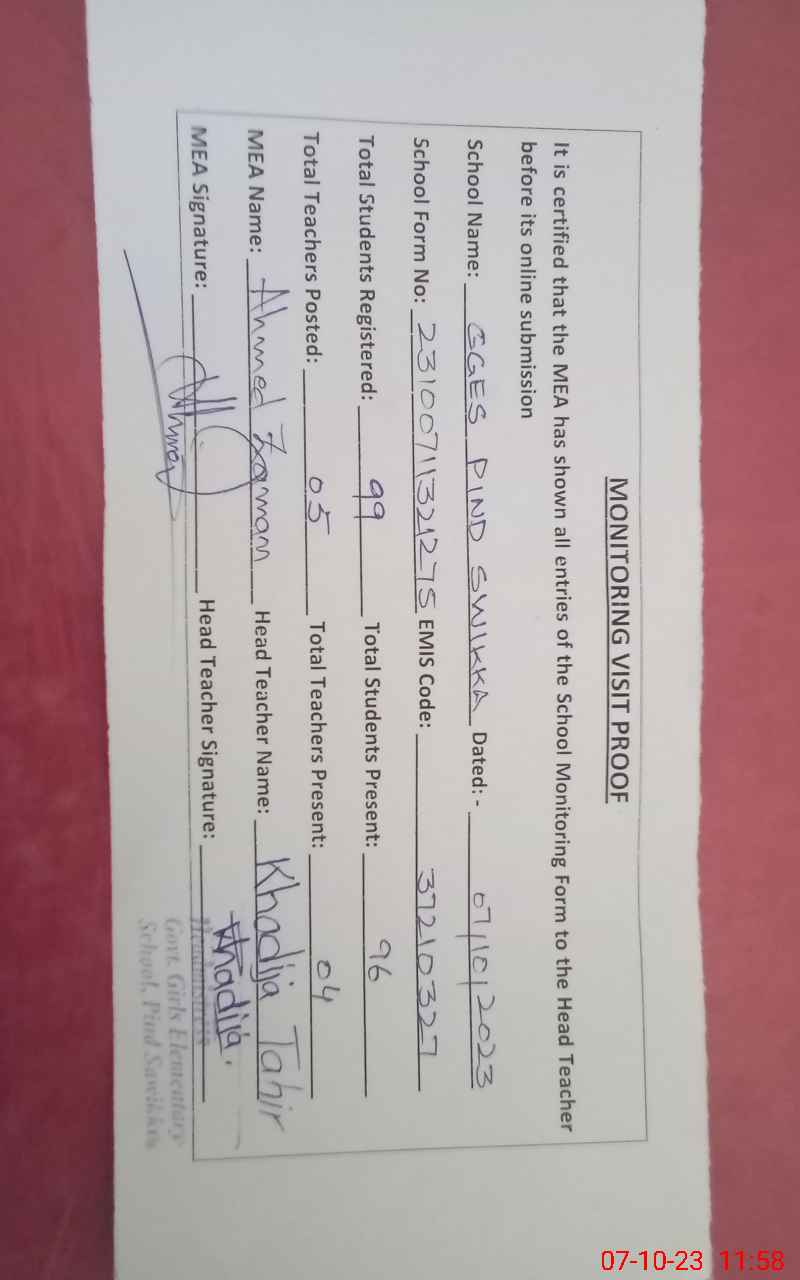 MONITORING VISIT PROOF
It is certified that the MEA has shown all entries of the School Monitoring Form to the Head Teacher
before its online submission
School Name: GGES PIND SWIKKA Dated: - 07/10/2023
School Form No: 2310071321275 EMIS Code: 37210327
Total Students Registered: 99 Total Students Present: 96
Total Teachers Posted: 05 Total Teachers Present: 04
MEA Name: Ahmed Zaman Head Teacher Name: Khadija Tahir
MEA Signature: Head Teacher Signature: Khadija.
Headmistress
Govt. Girls Elementary
School, Pind Sawikka
07-10-23 11:58